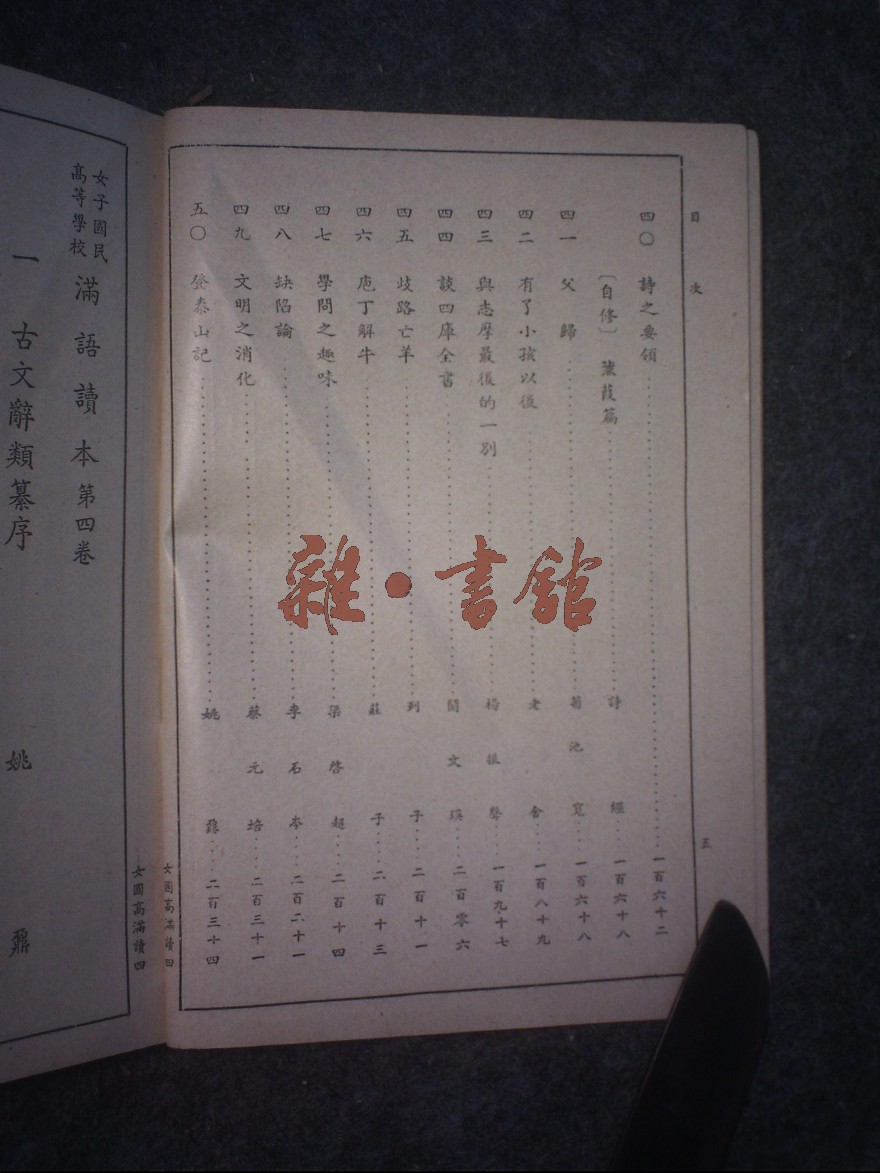 目次
五
四〇 詩之要領……一百六十二
〔自修〕 蒹葭篇……詩經……一百六十八
四一 父歸……菊池寬……一百六十八
四二 有了小孩以後……老舍……一百八十九
四三 與志摩最後的一別……楊振聲……一百九十七
四四 談四庫全書……聞文瑛……二百零六
四五 歧路亡羊……列子……二百十一
四六 庖丁解牛……莊子……二百十三
四七 學問之趣味……梁啓超……二百十四
四八 缺陷論……李石岑……二百二十一
四九 文明之消化……蔡元培……二百三十一
五〇 登泰山記……姚鼐……二百三十四
女國高滿讀四
女國高滿讀四
女子國民高等學校 滿語讀本 第四卷
一 古文辭類纂序 姚鼐
雜·書館